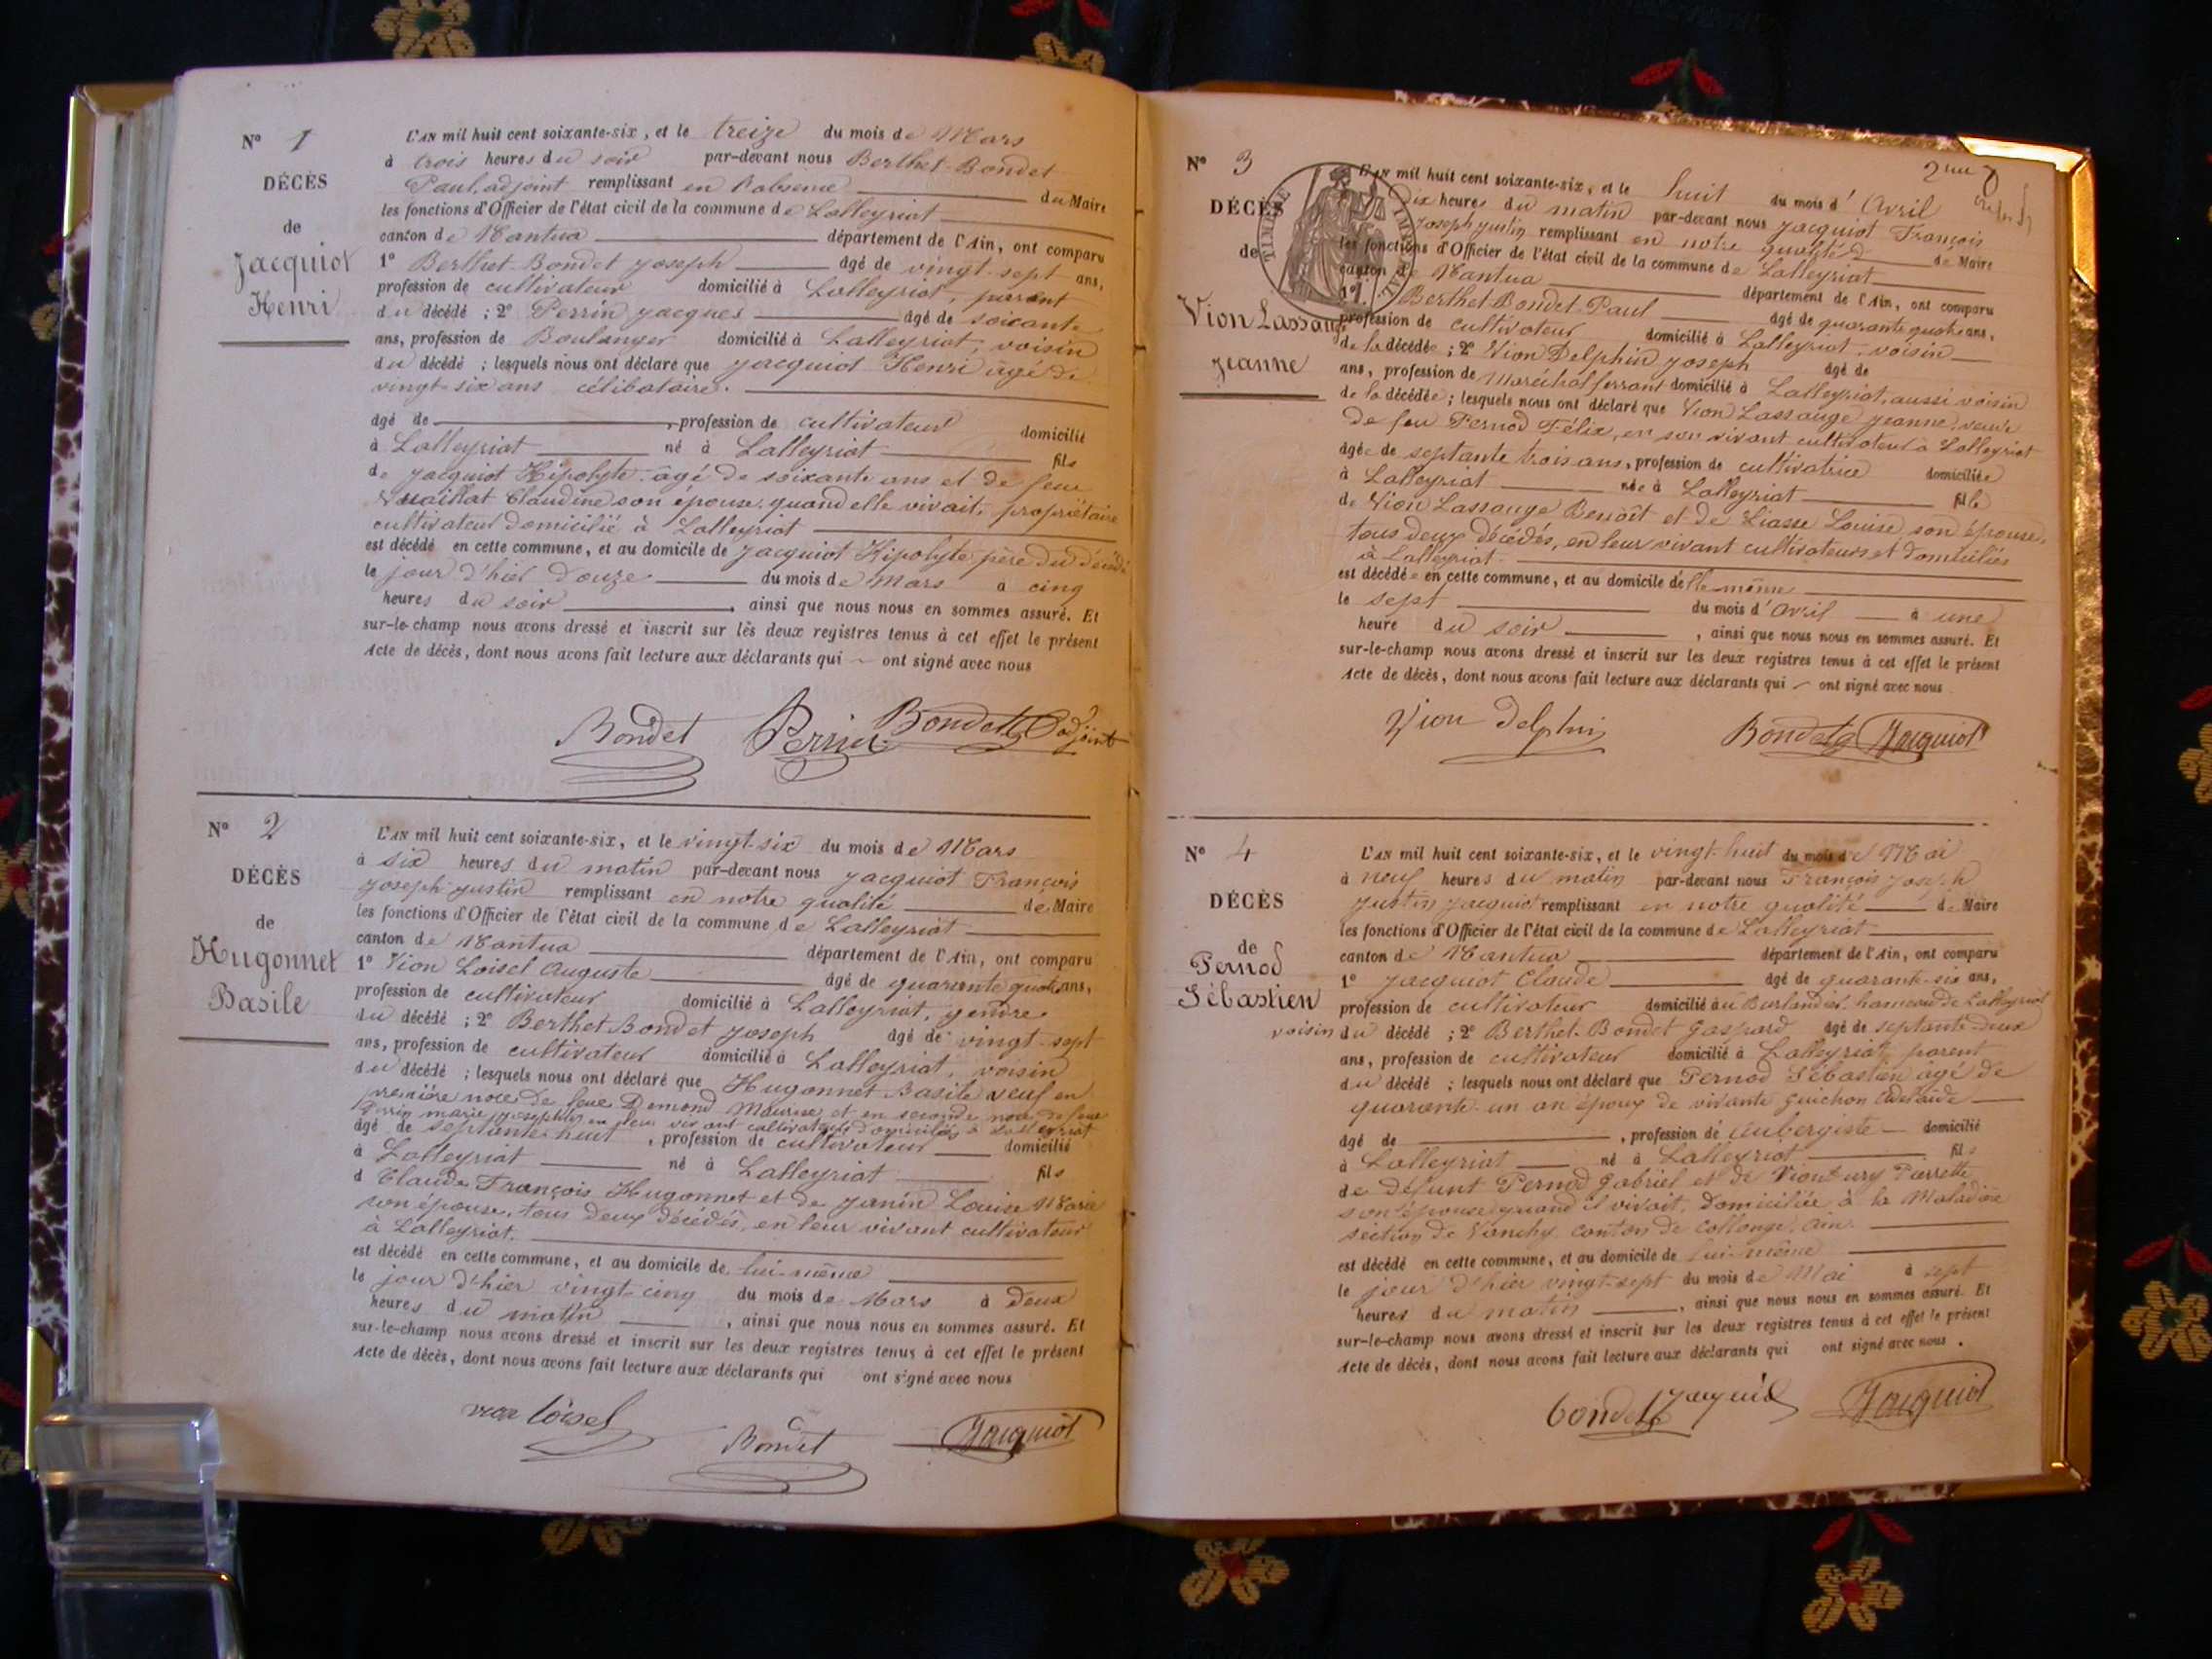 N° 1
DÉCÈS
de
Jacquiot
Henri
L'AN mil huit cent soixante-six, et le treize du mois de Mars
à trois heures du soir par-devant nous Berthet-Bondet
Paul, adjoint remplissant en l'absence du Maire
les fonctions d'Officier de l'état civil de la commune de Lalleyriat
canton de Nantua département de l'Ain, ont comparu
1° Berthet-Bondet Joseph âgé de vingt-sept ans,
profession de cultivateur domicilié à Lalleyriat, parent
du décédé ; 2° Perrin Jacques âgé de soixante
ans, profession de Boulanger domicilié à Lalleyriat, voisin
du décédé ; lesquels nous ont déclaré que Jacquiot Henri âgé de
vingt-six ans célibataire.
âgé de , profession de cultivateur domicilié
à Lalleyriat né à Lalleyriat fils
de Jacquiot Hipolyte âgé de soixante ans et de feue
Vuaillat Claudine son épouse quand elle vivait, propriétaire
cultivateur domicilié à Lalleyriat
est décédé en cette commune, et au domicile de Jacquiot Hipolyte père du décédé
le jour d'hier douze du mois de Mars à cinq
heures du soir , ainsi que nous nous en sommes assuré. Et
sur-le-champ nous avons dressé et inscrit sur les deux registres tenus à cet effet le présent
Acte de décès, dont nous avons fait lecture aux déclarants qui ont signé avec nous
Bondet Perrin Bondet adjoint
N° 2
DÉCÈS
de
Hugonnet
Basile
L'AN mil huit cent soixante-six, et le vingt-six du mois de Mars
à six heures du matin par-devant nous Jacquiot François
Joseph Justin remplissant en notre qualité de Maire
les fonctions d'Officier de l'état civil de la commune de Lalleyriat
canton de Nantua département de l'Ain, ont comparu
1° Vion Loisel Auguste âgé de quarante quatre ans,
profession de cultivateur domicilié à Lalleyriat, gendre
du décédé ; 2° Berthet Bondet Joseph âgé de vingt-sept
ans, profession de cultivateur domicilié à Lalleyriat, voisin
du décédé ; lesquels nous ont déclaré que Hugonnet Basile veuf en
première noce de feue Demond Maurise et en seconde noce de feue
Perrin marie Josephte en leur vivant cultivateurs domiciliés à Lalleyriat
âgé de septante-huit , profession de cultivateur domicilié
à Lalleyriat né à Lalleyriat fils
d Claude François Hugonnet et de Janin Louise Marie
son épouse, tous deux décédés, en leur vivant cultivateur
à Lalleyriat.
est décédé en cette commune, et au domicile de lui-même
le jour d'hier vingt-cinq du mois de Mars à deux
heures du matin , ainsi que nous nous en sommes assuré. Et
sur-le-champ nous avons dressé et inscrit sur les deux registres tenus à cet effet le présent
Acte de décès, dont nous avons fait lecture aux déclarants qui ont signé avec nous
vion loisel Bondet Jacquiot
2me
N° 3
DÉCÈS
de
Vion Lassauge
Jeanne
TIMBRE IMPÉRIAL
L'AN mil huit cent soixante-six, et le huit du mois d' Avril
dix heures du matin par-devant nous Jacquiot François
Joseph Justin remplissant en notre qualité de Maire
les fonctions d'Officier de l'état civil de la commune de Lalleyriat
canton de Nantua département de l'Ain, ont comparu
1° Berthet-Bondet Paul âgé de quarante quatre ans,
profession de cultivateur domicilié à Lalleyriat, voisin
de la décédée ; 2° Vion Delphin Joseph âgé de
ans, profession de Maréchal ferrant domicilié à Lalleyriat, aussi voisin
de la décédée ; lesquels nous ont déclaré que Vion Lassauge Jeanne, veuve
de feu Pernod Félix, en son vivant cultivateur à Lalleyriat
âgée de septante trois ans, profession de cultivatrice domiciliée
à Lalleyriat née à Lalleyriat fille
de Vion Lassauge Benoît et de Liasse Louise son épouse,
tous deux décédés, en leur vivant cultivateurs et domiciliés
à Lalleyriat.
est décédée en cette commune, et au domicile d'elle même
le sept du mois d'avril à une
heure du soir , ainsi que nous nous en sommes assuré. Et
sur-le-champ nous avons dressé et inscrit sur les deux registres tenus à cet effet le présent
Acte de décès, dont nous avons fait lecture aux déclarants qui ont signé avec nous
Vion Delphin Bondet Jacquiot
N° 4
DÉCÈS
de
Pernod
Sébastien
L'AN mil huit cent soixante-six, et le vingt-huit du mois de Mai
à neuf heures du matin par-devant nous François Joseph
Justin Jacquiot remplissant en notre qualité de Maire
les fonctions d'Officier de l'état civil de la commune de Lalleyriat
canton de Nantua département de l'Ain, ont comparu
1° Jacquiot Claude âgé de quarante-six ans,
profession de cultivateur domicilié au Burlandier, hameau de Lalleyriat
voisin du décédé ; 2° Berthet-Bondet Gaspard âgé de septante-deux
ans, profession de cultivateur domicilié à Lalleyriat, parent
du décédé ; lesquels nous ont déclaré que Pernod Sébastien âgé de
quarante-un an époux de vivante Guichon Adélaïde
âgé de , profession de Aubergiste domicilié
à Lalleyriat né à Lalleyriat fils
de défunt Pernod Gabriel et de Pierrette
son épouse quand il vivait, domiciliée à la Maladière
section de Vanchy canton de Collonge, Ain.
est décédé en cette commune, et au domicile de lui-même
le jour d'hier vingt-sept du mois de Mai à sept
heures du matin , ainsi que nous nous en sommes assuré. Et
sur-le-champ nous avons dressé et inscrit sur les deux registres tenus à cet effet le présent
Acte de décès, dont nous avons fait lecture aux déclarants qui ont signé avec nous.
bondet Jacquiot Jacquiot